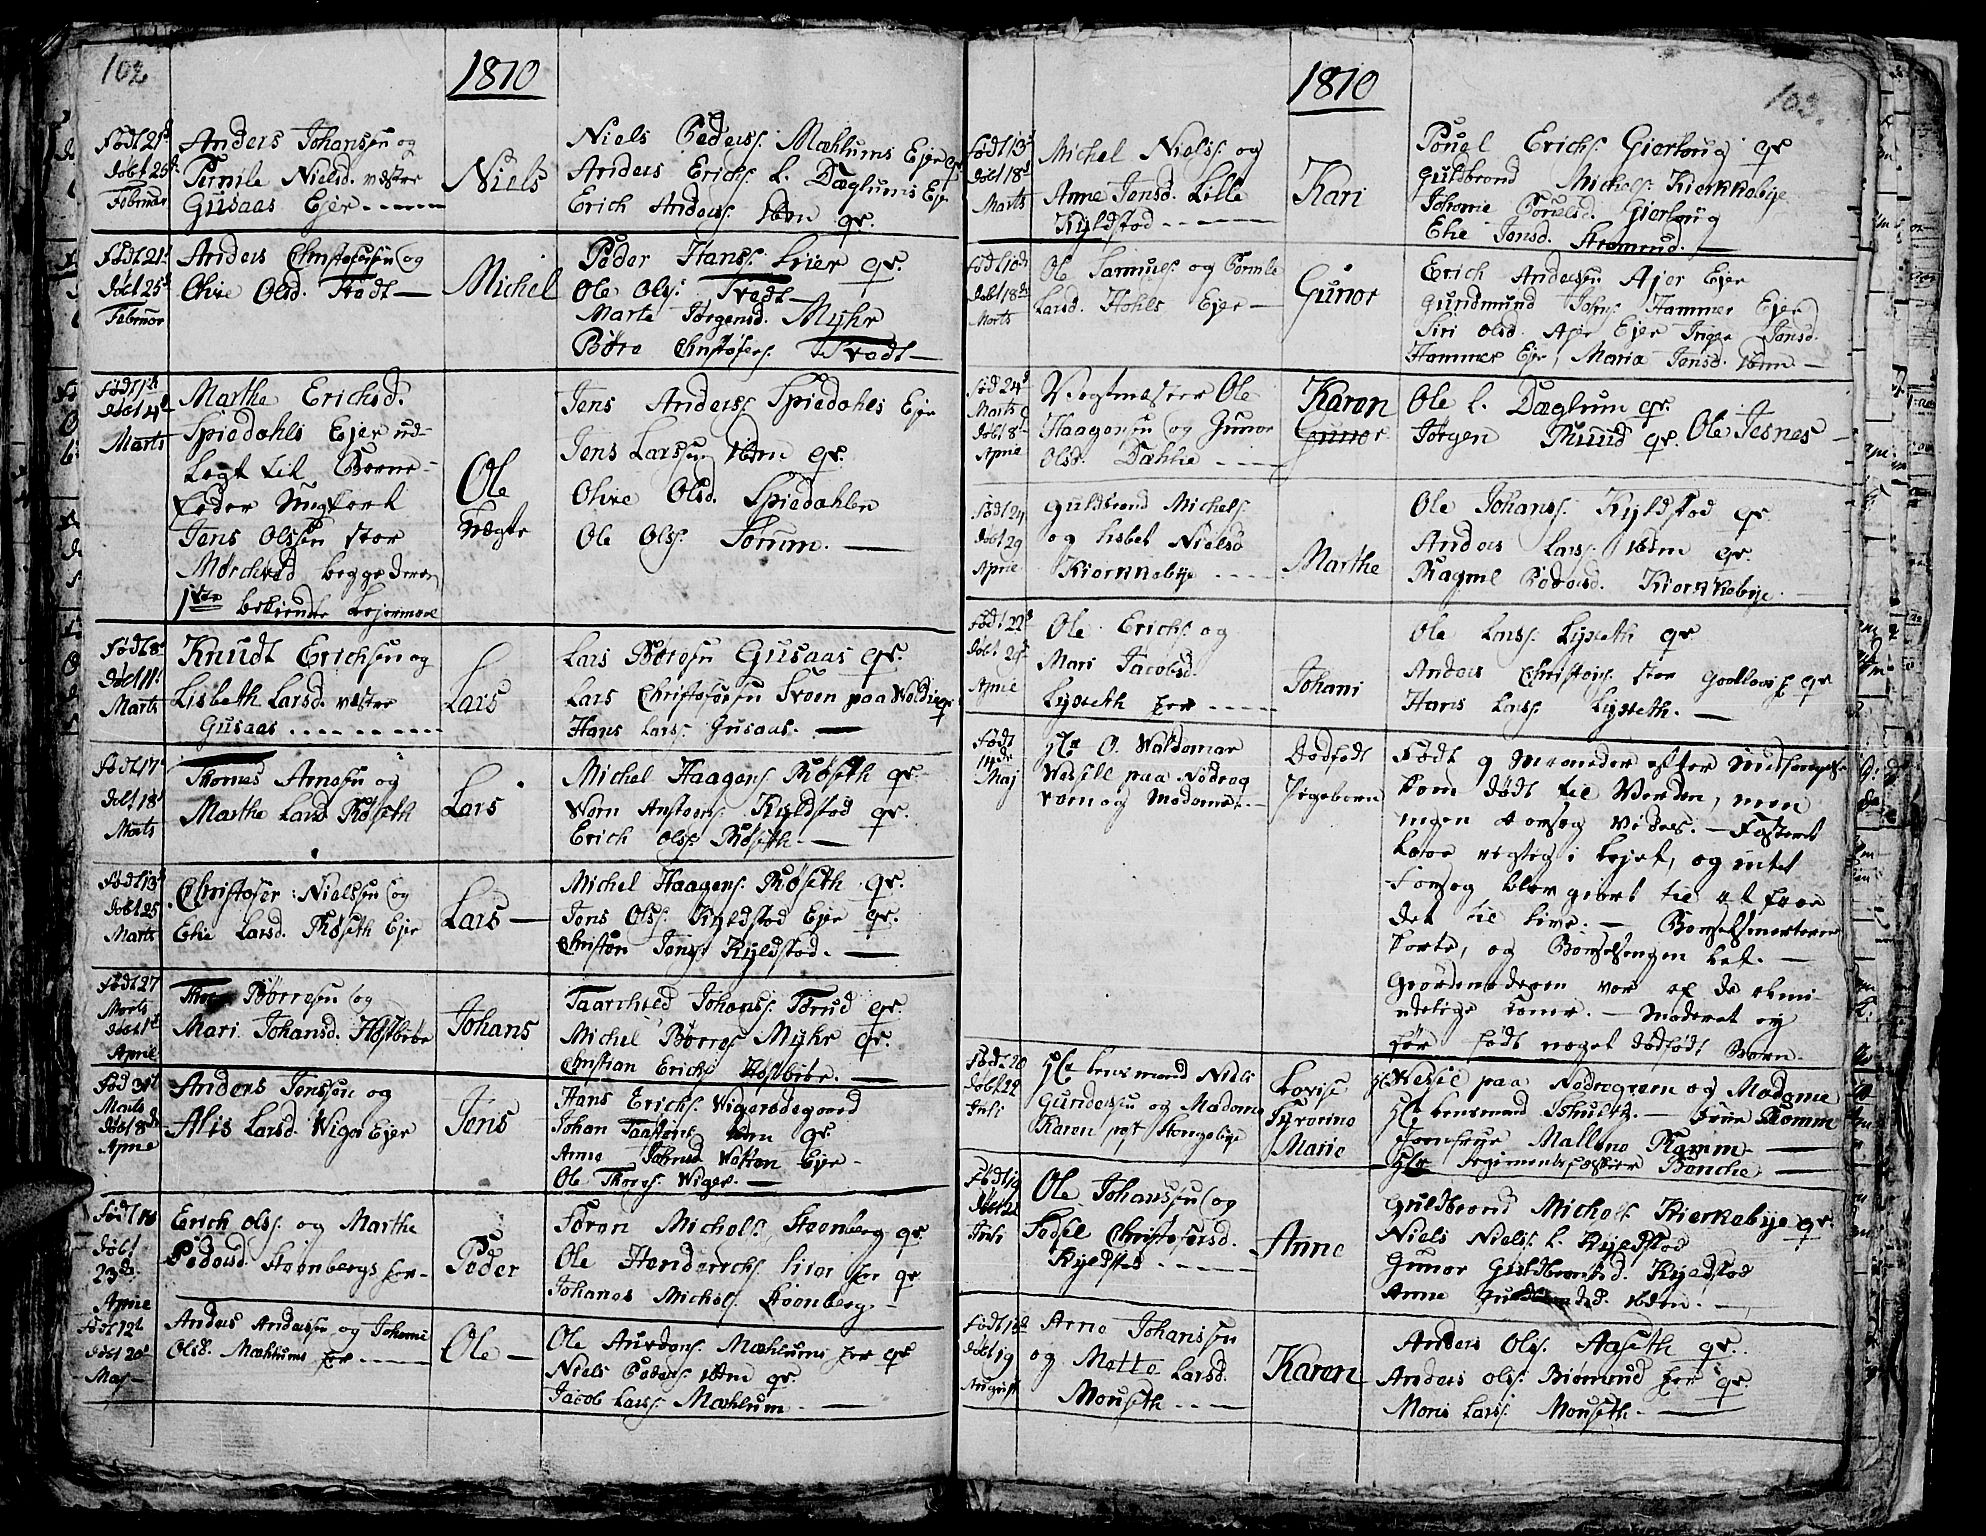 102
1810
Født 21d
døbt 25d
Februar
Anders Johanssen og
Pernile Nielsd. vestre
Gusaas Ejer
Niels
Niels Peders. Mæhlums Ejer qr.
Anders Erichs. l. Dæglums Ejr
Erich Anders. ibdm qr.
Født 21d
døbt 25d
Februar
Anders Christofersen og
Olive Olsd. Trodt
Michel
Peder Hans. Lier qr.
Ole Ols. Trodt
Marte Jørgensd. Myhr
Børe Christofers. Trodt
Født 1d
døbt 4d
Marts
Marthe Erichsd.
Spiedahls Ejer ud-
lagt til Barne-
fader Ungkarl
Jens Olssen stor
Mørchved begge deres
1ste bekiendte Lejermaal
Ole
uægte
Jens Anders. Spiedahls Ejr
Jens Larssen ibdm qr.
Olive Olsd. Spiedahlen
Ole Ols. Sorum.
Født 8d
døbt 11d
Marts
Knudt Erichsen og
Lisbeth Larsd. vestre
Gusaas
Lars
Lars Børesen Gusaas qr.
Lars Christofersen Sveen paa Woldie qr
Hans Lars. Gusaas.
Født 17d
døbt 18d
Marts
Thomes Arnesen og
Marthe Larsd Røseth
Lars
Michel Haagens. Røseth qr.
Arn Anstens. Kyldstad qr.
Erich Ols. Røseth.
Født 13d
døbt 25
Marts
Christofer Nielssen og
Elie Larsd. Røseth Ejer
Lars
Michel Haagens. Røseth qr.
Jens Ols. Kyldstad Ejer qr.
Christen Jens. Kyldstad.
Født 27
Marts
døbt 1d
April
Børresen og
Mari Johansd. Hostbite
Johans
Taarchild Johans. Forud qr.
Michel Børres. Myhr qr.
Christian Erichs. Hostbite.
Fød 31d
Marts
døbt 8de
April
Anders Jenssen og
Alis Larsd. Wiger Ejer
Jens
Hans Erichs. Wigerødegaard
Johan Taasteins. ibdm qr.
Anne Johnsd. Watten Ejr
Ole Thores. Wiger.
Født 10
døbt
23de
April
Erich Ols. og Marthe
Pedersd. Steenbergs Ejr
Peder
Søren Michels. Steenberg qr.
Ole Henderichs. Lier Ejr qr
Johanes Michels. Steenberg
Født 12d
døbt 20d
Maj
Anders Anderssen og Johanne
Olsd. Mæhlums Ejr
Ole
Ole Amdens. Mæhlums Ejr qr
Niels Peders. ibdm qr.
Jacob Lars. Mæhlum.
103.
1810
Født 13d
døbt 18d
Marts
Michel Niels. og
Anne Jensd. Lille
Kyldstad
Kari
Pouel Erichs. Gierløug qr
Guldbrand Michels. Kierkkebye
Johanne Pouelsd. Gierløug
Elie Jensd. Strømrud.
Født 10d
døbt 18de
Marts
Ole Samuels. og Pernile
Larsd. Hohls Ejer
Gunor
Erich Anderssen Ajer Ejer
Gundmund Johns. Hammer Ejer
Siri Olsd. Ajer Ejer Inger Jensd.
Hammer Ejr, Maria Jensd. ibdm
Fød 24d
Marts
døbt 8
April
Vegtmester Ole
Haagensen og Gunor
Olsd. Dæhlie
Karen
Gunor
Ole l. Dæglum qr.
Jørgen Ruud qr. Ole Tesnes
Født 24
døbt 29
April
Guldbrand Michels.
og Lisbet Nielsd
Kierkkebye
Marthe
Ole Johans. Kyldstad qr.
Anders Lars. ibdm qr.
Ragnil Pedersd. Kierkkebye.
Født 22d
døbt 29
April
Ole Erichs. og
Mari Jacobsd.
Lyseth Ejr
Johani
Ole Lars. Lyseth qr
Anders Christens. stor Godlos Ejr qr
Hans Lars. Lyseth.
Født
14de
Maj
Hr. O. Waldemar
Wessell paa Nødre og
Madame
Dødfødt
Pigebarn
Født 9 Maaneder efter Undfangelse
kom dødt til Verden, men
ingen Aarsag vides. — Fosteret
laae rigtig i Lejet, og intet
Forsøg blev giort til at faae
det til Live. — Barselsmerterne
korte, og Barselsengen let.
Gjordemoderen var af de almi-
delige Koner. — Moderet ey
før født noget dødfødt Barn.
Født 20
døbt 22
Juli
Hr. Lensmand Niels
Gunderssen og Madame
Karen født Stengelbye
Lovise
Severine
Marie
Hr Wesel paa Nødregreen og Madame
Hr. Lensmand Schultz. — Frue Ramm
Jomfrue Mallene Ramm
Hr. Regimentsfeldskier Bancke
Født 19
døbt 22
Juli
Ole Johanssen og
Sedsel Christofersd.
Kyldstad
Anne
Guldbrand Michels. Kierkebye qr.
Niels Niels. l. Kyldstad
Gunor Guldbrandsd. Kyldstad
Anne Guldbrandsd. ibdm.
Født 18d
døbt 19
August
Arne Johanssen
og Mette Larsd.
Mouseth
Karen
Anders Ols. Aaseth qr.
Anders Ols. Biørnrud Ejr qr.
Moris Lars. Mouseth.